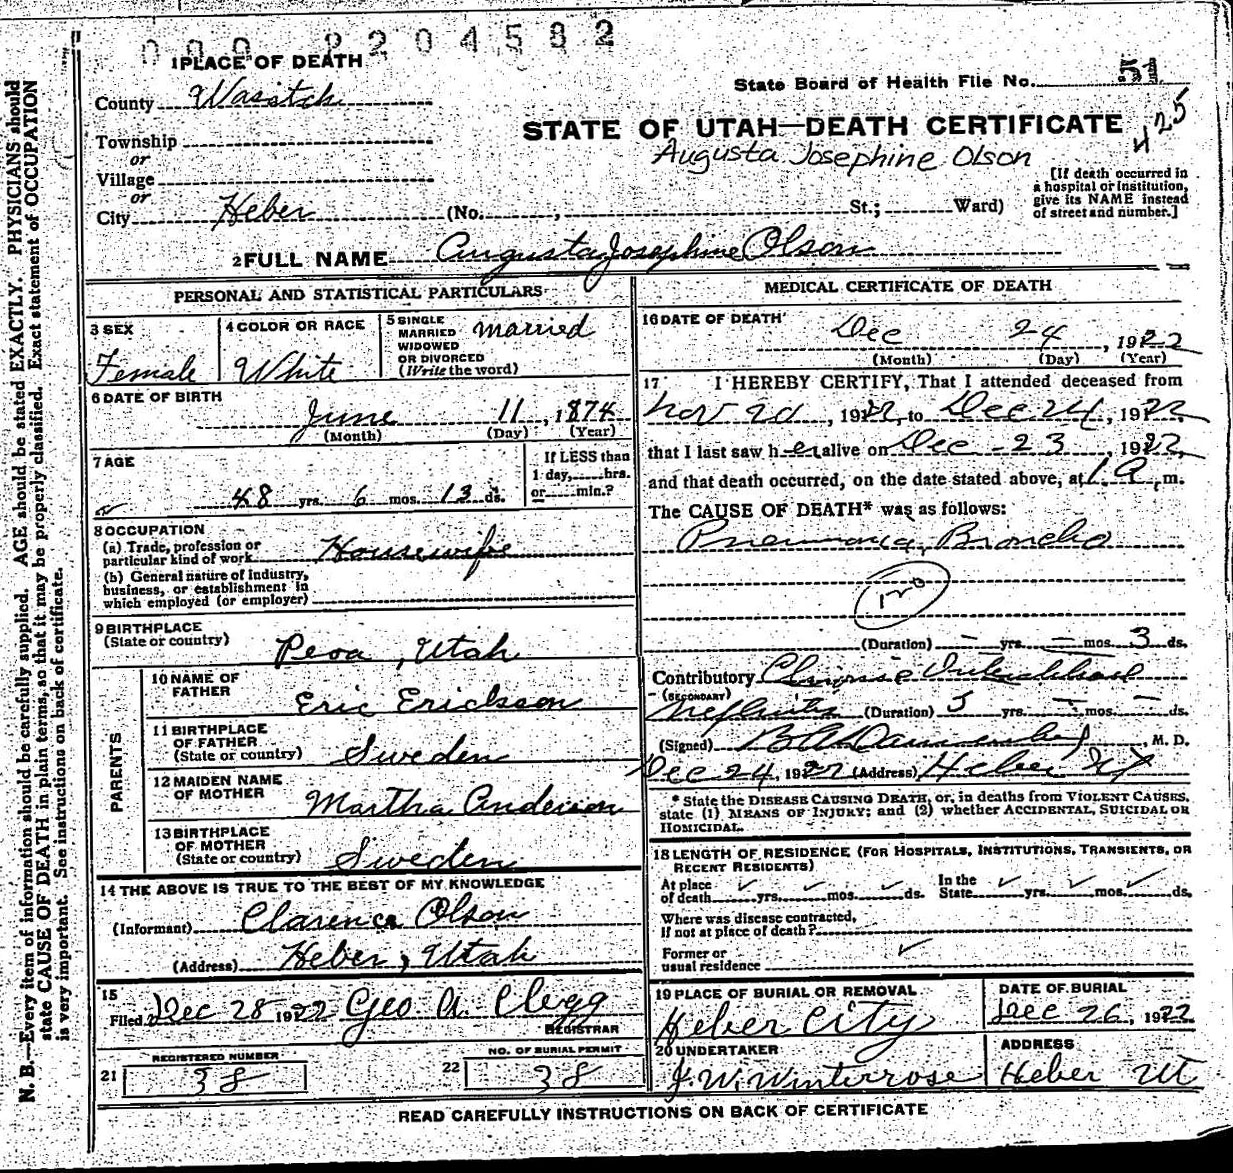 000 2204582
1 PLACE OF DEATH
County Wasatch
Township
or
Village
or
City Heber (No. , St.; Ward)
State Board of Health File No. 51
425
STATE OF UTAH—DEATH CERTIFICATE
Augusta Josephine Olson
[If death occurred in
a hospital or institution,
give its NAME instead
of street and number.]
2 FULL NAME Augusta Josephine Olson
PERSONAL AND STATISTICAL PARTICULARS
3 SEX
Female
4 COLOR OR RACE
White
5 SINGLE
MARRIED
WIDOWED
OR DIVORCED
(Write the word)
married
6 DATE OF BIRTH
June 11, 1874
(Month) (Day) (Year)
7 AGE
48 yrs. 6 mos. 13 ds.
If LESS than
1 day, hrs.
or min.?
8 OCCUPATION
(a) Trade, profession or
particular kind of work Housewife
(b) General nature of industry,
business, or establishment in
which employed (or employer)
9 BIRTHPLACE
(State or country) Peoa, Utah
PARENTS
10 NAME OF
FATHER Eric Erickson
11 BIRTHPLACE
OF FATHER
(State or country) Sweden
12 MAIDEN NAME
OF MOTHER Martha Anderson
13 BIRTHPLACE
OF MOTHER
(State or country) Sweden
14 THE ABOVE IS TRUE TO THE BEST OF MY KNOWLEDGE
(Informant) Clarence Olson
(Address) Heber, Utah
15
Filed Dec 28 1922 Geo. A. Clegg
REGISTRAR
21 REGISTERED NUMBER
38
22 NO. OF BURIAL PERMIT
38
MEDICAL CERTIFICATE OF DEATH
16 DATE OF DEATH
Dec 24, 1922
(Month) (Day) (Year)
17 I HEREBY CERTIFY, That I attended deceased from
Nov 20, 1922, to Dec 24, 1922,
that I last saw her alive on Dec - 23, 1922,
and that death occurred, on the date stated above, at 1 A. m.
The CAUSE OF DEATH* was as follows:
Pneumonia, Broncho
(Duration) — yrs. — mos. 3 ds.
Contributory Chronic
(SECONDARY)
Nephritis (Duration) 5 yrs. — mos. — ds.
(Signed) , M. D.
Dec 24, 1922 (Address) Heber Ut
* State the DISEASE CAUSING DEATH, or, in deaths from VIOLENT CAUSES,
state (1) MEANS OF INJURY; and (2) whether ACCIDENTAL, SUICIDAL OR
HOMICIDAL.
18 LENGTH OF RESIDENCE (FOR HOSPITALS, INSTITUTIONS, TRANSIENTS, OR
RECENT RESIDENTS)
At place
of death yrs. mos. ds.
In the
State yrs. mos. ds.
Where was disease contracted,
if not at place of death?
Former or
usual residence
19 PLACE OF BURIAL OR REMOVAL
Heber City
DATE OF BURIAL
Dec 26, 1922
20 UNDERTAKER
J. W. Winterrose
ADDRESS
Heber Ut
READ CAREFULLY INSTRUCTIONS ON BACK OF CERTIFICATE
N. B.—Every item of information should be carefully supplied. AGE should be stated EXACTLY. PHYSICIANS should
state CAUSE OF DEATH in plain terms, so that it may be properly classified. Exact statement of OCCUPATION
is very important. See instructions on back of certificate.